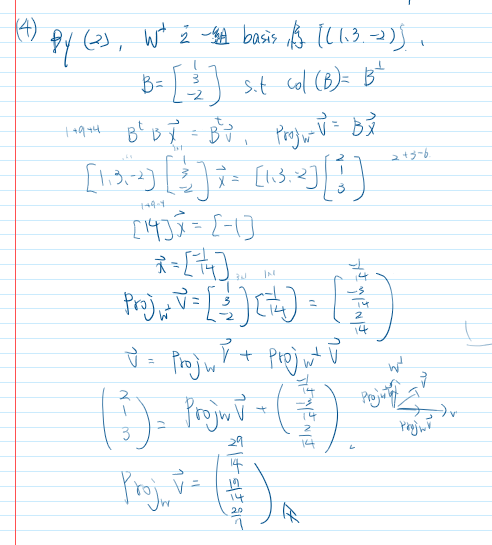 (4) By (2), W⊥ 之一組 basis 為 {(1,3,-2)},
B = [1 3 -2] s.t col (B) = B⊥
1+9+4 BᵗB x⃗ = Bᵗv⃗, Proj_W⊥ v⃗ = Bx⃗
[1,3,-2] [1 3 -2] x⃗ = [1,3,-2] [2 1 3] 2+3-6
1+9+4
[14] x⃗ = [-1]
x⃗ = [-1/14]
Proj_W⊥ v⃗ = [1 3 -2] [-1/14] = [-1/14 -3/14 2/14]
v⃗ = Proj_W v⃗ + Proj_W⊥ v⃗
(2 1 3) = Proj_W v⃗ + (-1/14 -3/14 2/14)
W⊥
Proj_W⊥ v⃗ v⃗
Proj_W v⃗
Proj_W v⃗ = (29/14 17/14 20/7)